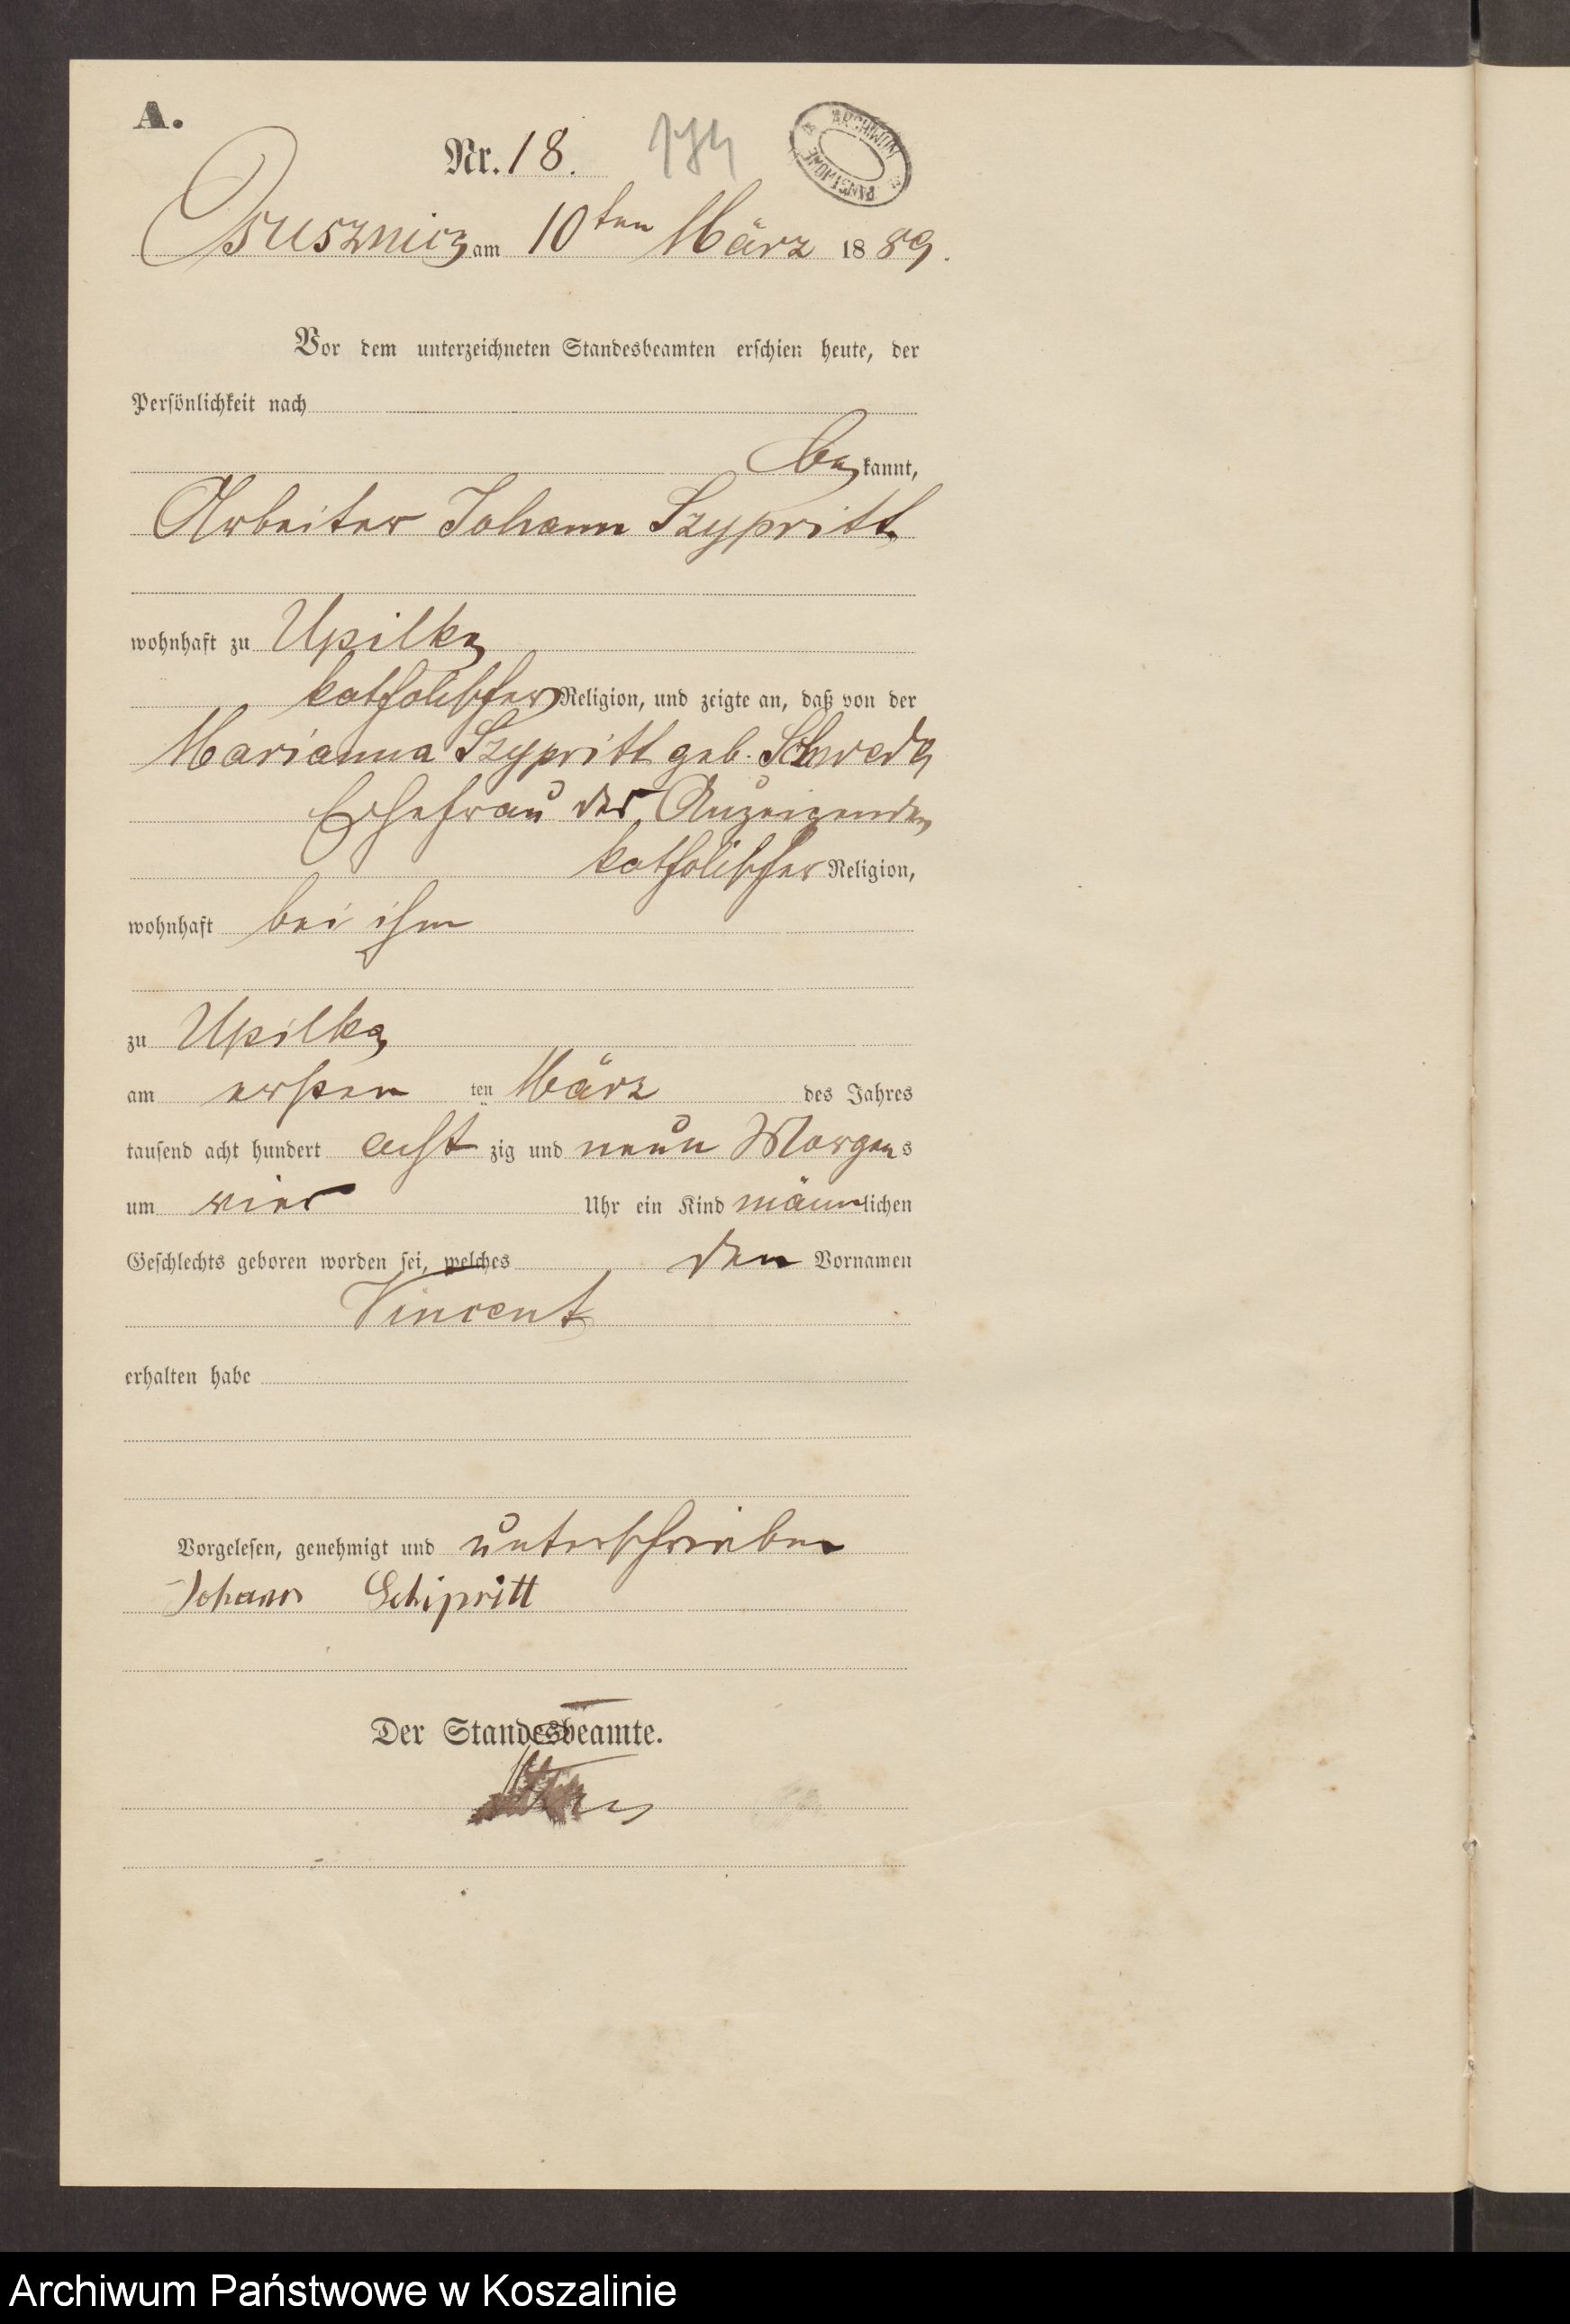 A.
Nr. 18.
174
ARCHIWUM PAŃSTWOWE
Osusznica am 10ten März 1889.
Vor dem unterzeichneten Standesbeamten erschien heute, der
Persönlichkeit nach
bekannt,
Arbeiter Johann Szypritt
wohnhaft zu Upilka
katholischer Religion, und zeigte an, daß von der
Marianna Szypritt geb. Schweda
Ehefrau des Anzeigenden
katholischer Religion,
wohnhaft bei ihm
zu Upilka
am ersten ten März des Jahres
tausend acht hundert acht zig und neun Morgens
um vier Uhr ein Kind männlichen
Geschlechts geboren worden sei, welches den Vornamen
Vincent
erhalten habe
Vorgelesen, genehmigt und unterschrieben
Johann Schipritt
Der Standesbeamte.
Archiwum Państwowe w Koszalinie